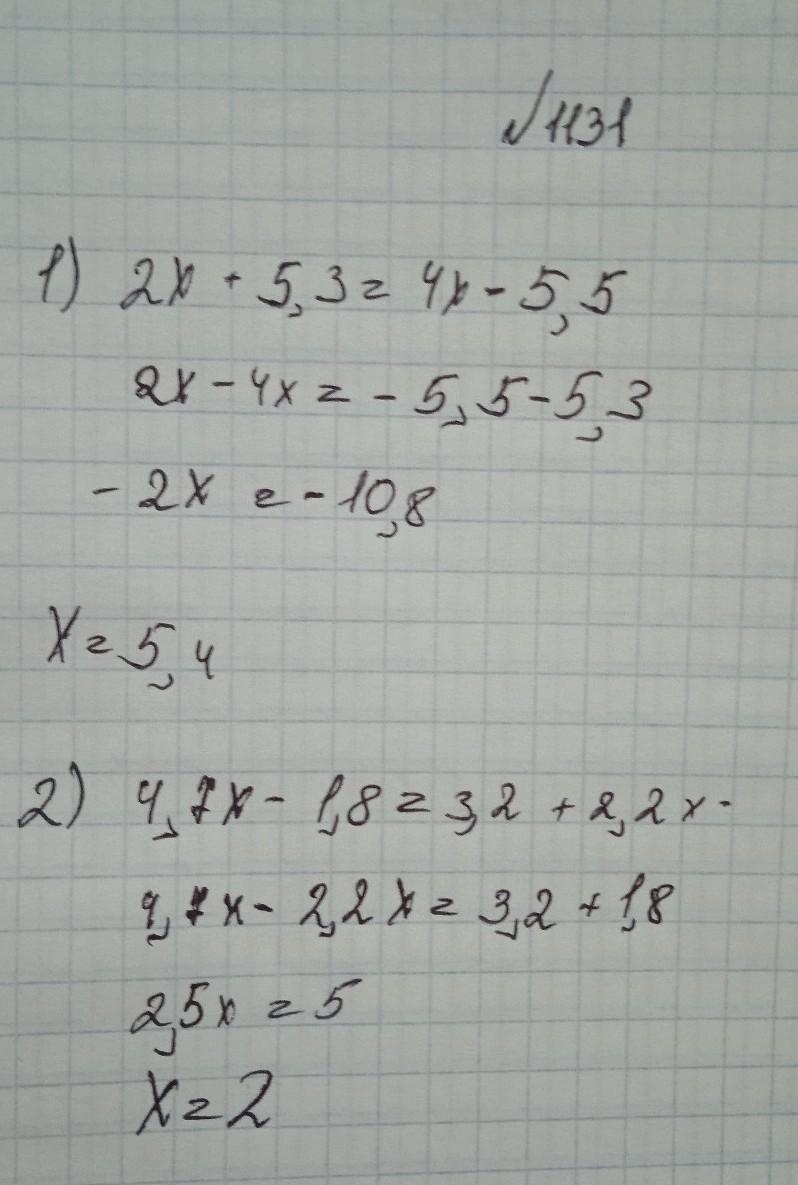 №1131
1) 2x + 5,3 = 4x - 5,5
2x - 4x = - 5,5 - 5,3
- 2x = - 10,8
x = 5,4
2) 4,7x - 1,8 = 3,2 + 2,2x.
4,7x - 2,2x = 3,2 + 1,8
2,5x = 5
x = 2